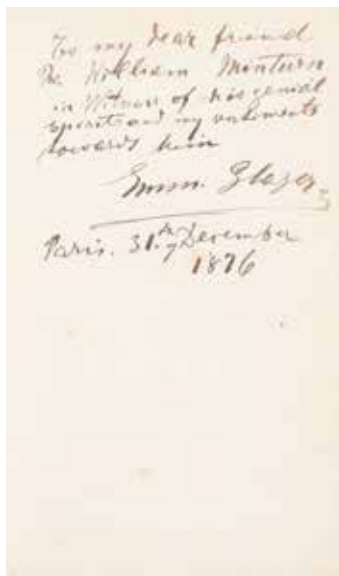 To my dear friend
William Minturn
in Witness of his genial
spirit and my
towards him
Emm. Glaser
Paris. 31th December
1876